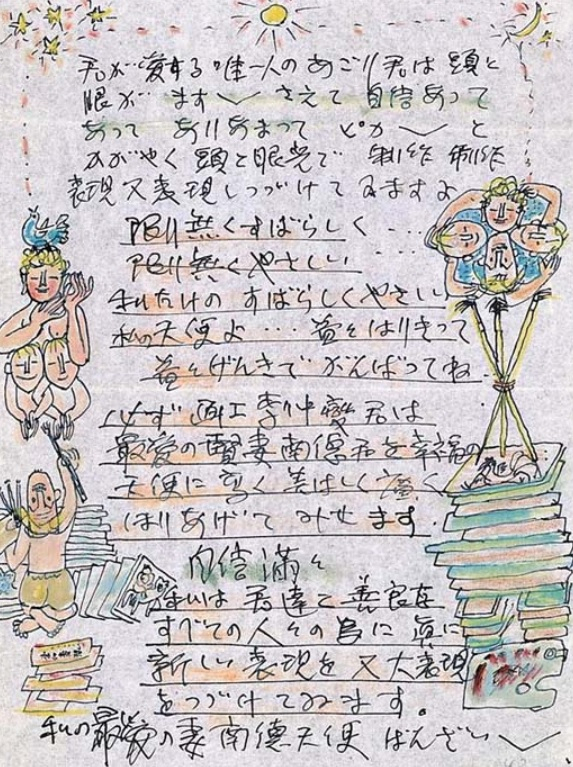 君が愛する唯一人のあごり君は頭と
眼が ます〳〵 さえて 自信あって
あって ありあまって ピカ〳〵 と
かがやく頭と眼光で 制作 制作
表現又表現しつづけてゐますよ
限り無くすばらしく ・・・
限り無くやさしい
私だけの すばらしくやさしい
私の天使よ ・・・・ 益々はりきって
益々げんきで がんばってね
必ず 画工李仲燮君は
最愛の賢妻南徳君を幸福の
天使に高く美はしく廣く
ほりあげて みせます.
自信満々
私は君達と善良な
すべての人々の為に眞に
新しい表現を又大表現
をつづけてゐます。
私の最愛の妻南徳天使 ばんざい